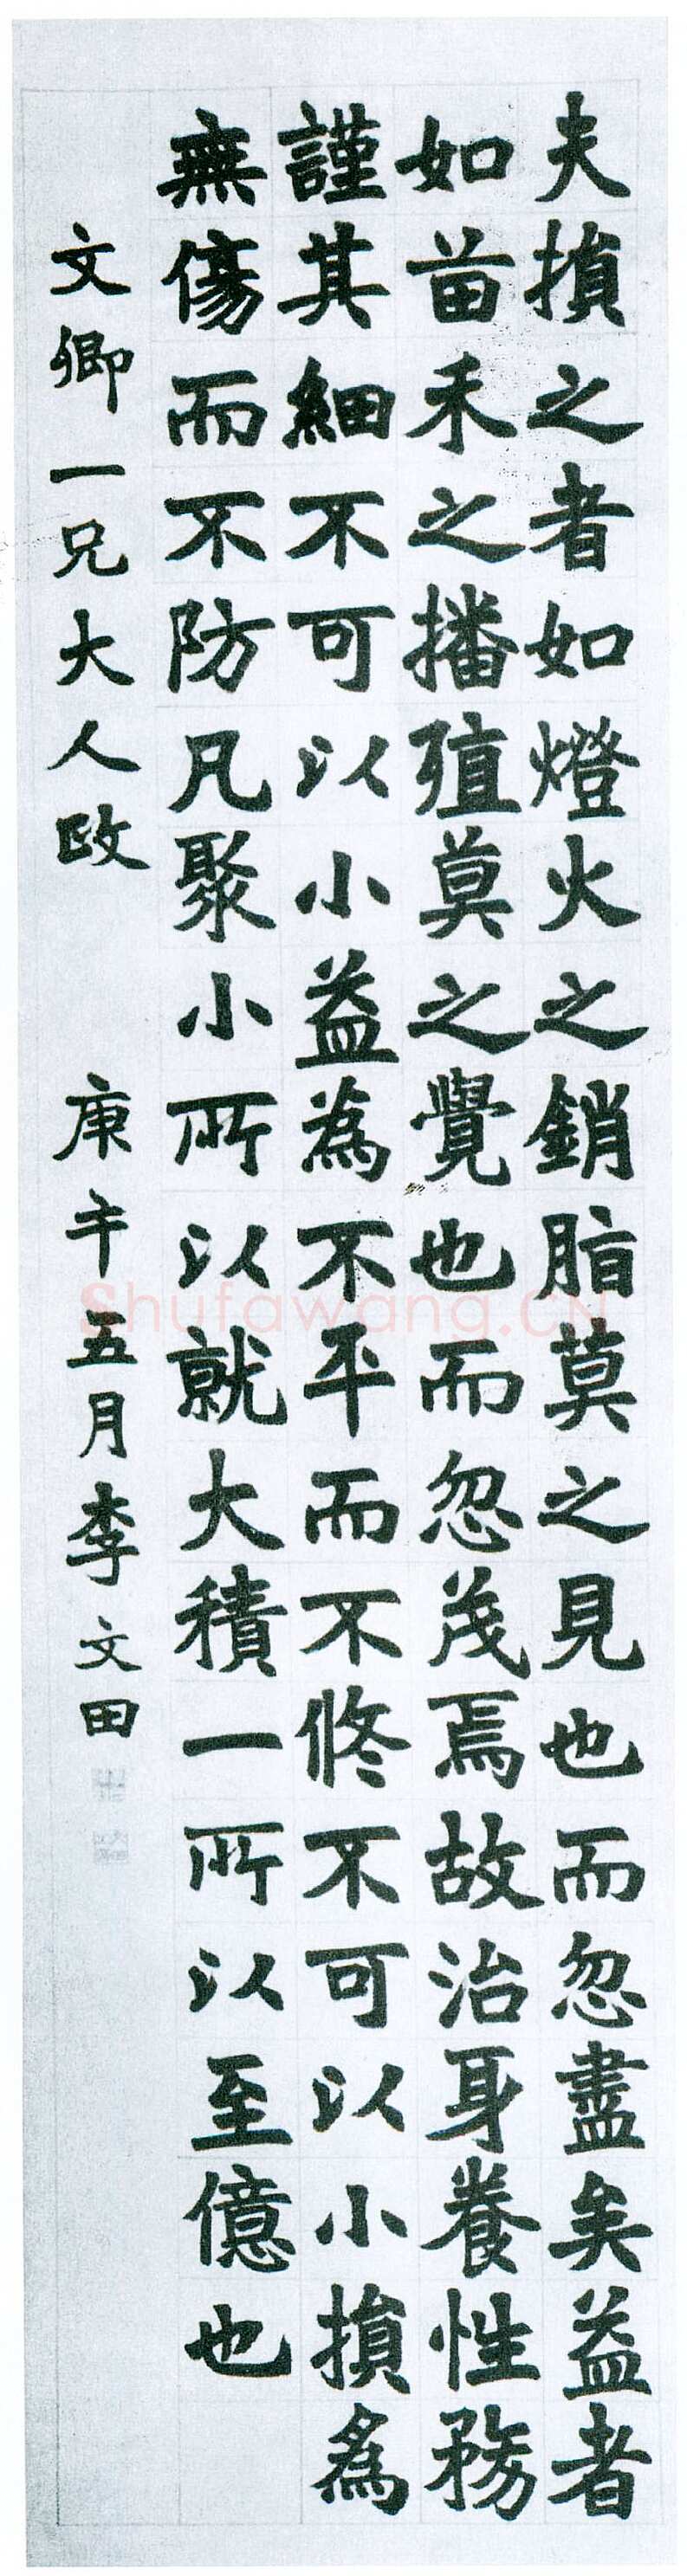 夫損之者如燈火之銷脂莫之見也而忽盡矣益者
如苗禾之播殖莫之覺也而忽茂焉故治身養性務
謹其細不可以小益為不平而不修不可以小損為
無傷而不防凡聚小所以就大積一所以至億也
文卿一兄大人政
庚午五月李文田
Shufawang.CN